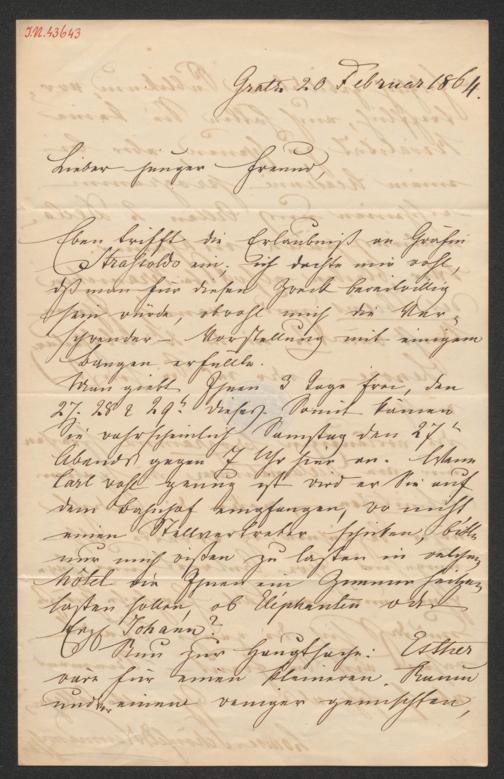 I.N. 43643
Gratz 20 Februar 1864.
Lieber junger Freund,
Eben trifft die Erlaubniß an Gräfin
Strasoldo ein; ich dachte mir wohl,
daß man für diesen Zweck bereitwillig
sein würde, obwohl mich die Ver-
schwender-Vorstellung mit einigem
Bangen erfüllte.
Man giebt Ihnen 3 Tage frei, den
27. 28 & 29t dieses. Somit kämen
Sie wahrscheinlich Samstag den 27tn
Abends gegen 7 Uhr hier an. Wenn
Carl wohl genug ist wird er Sie auf
dem Bahnhof empfangen, wo nicht
einen Stellvertreter schicken, bitte
nur mich wißen zu laßen in welchem
Hôtel wir Ihnen ein Zimmer heitzen
laßen sollen, ob Elephanten oder
Erzh Johann?
Nun zur Hauptsache: Esther
wäre für einen kleineren Raum
und einen weniger gemischten,